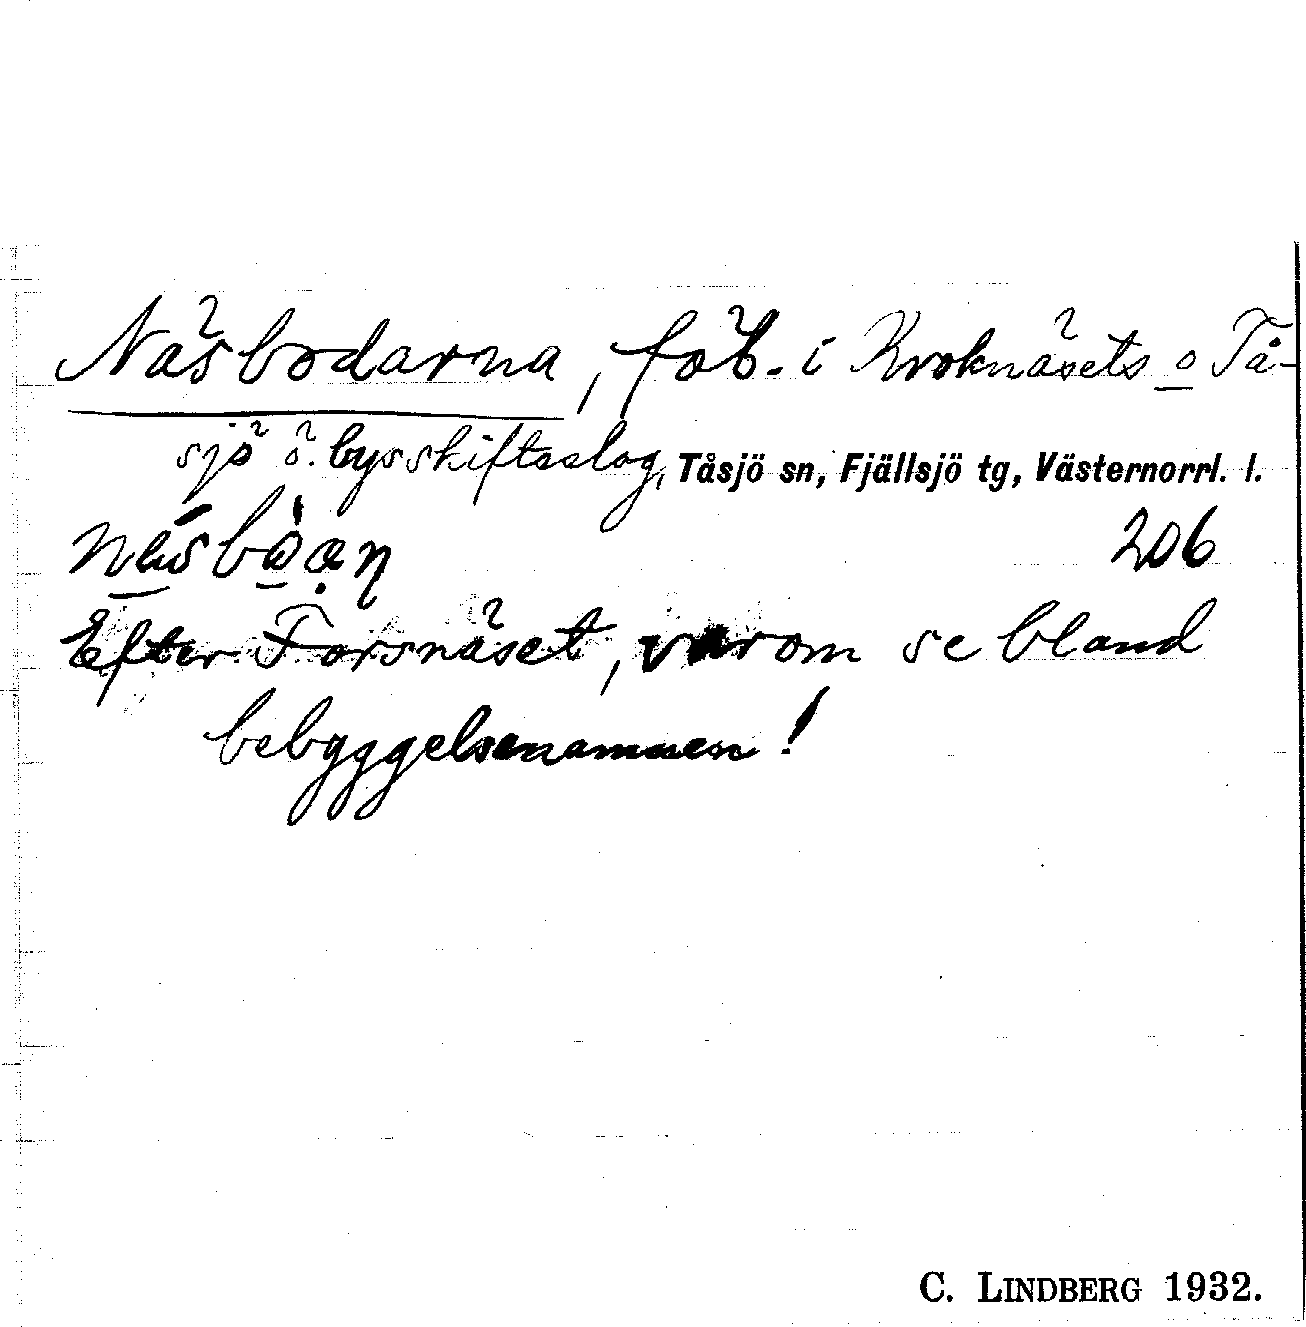 Näsbodarna, fäb. i Kroknäsets o Tå-
sjö ö. bys skifteslag, Tåsjö sn, Fjällsjö tg, Västernorrl. l.
206
Efter Forsnäset, varom se bland
bebyggelsenamnen!
C. LINDBERG 1932.